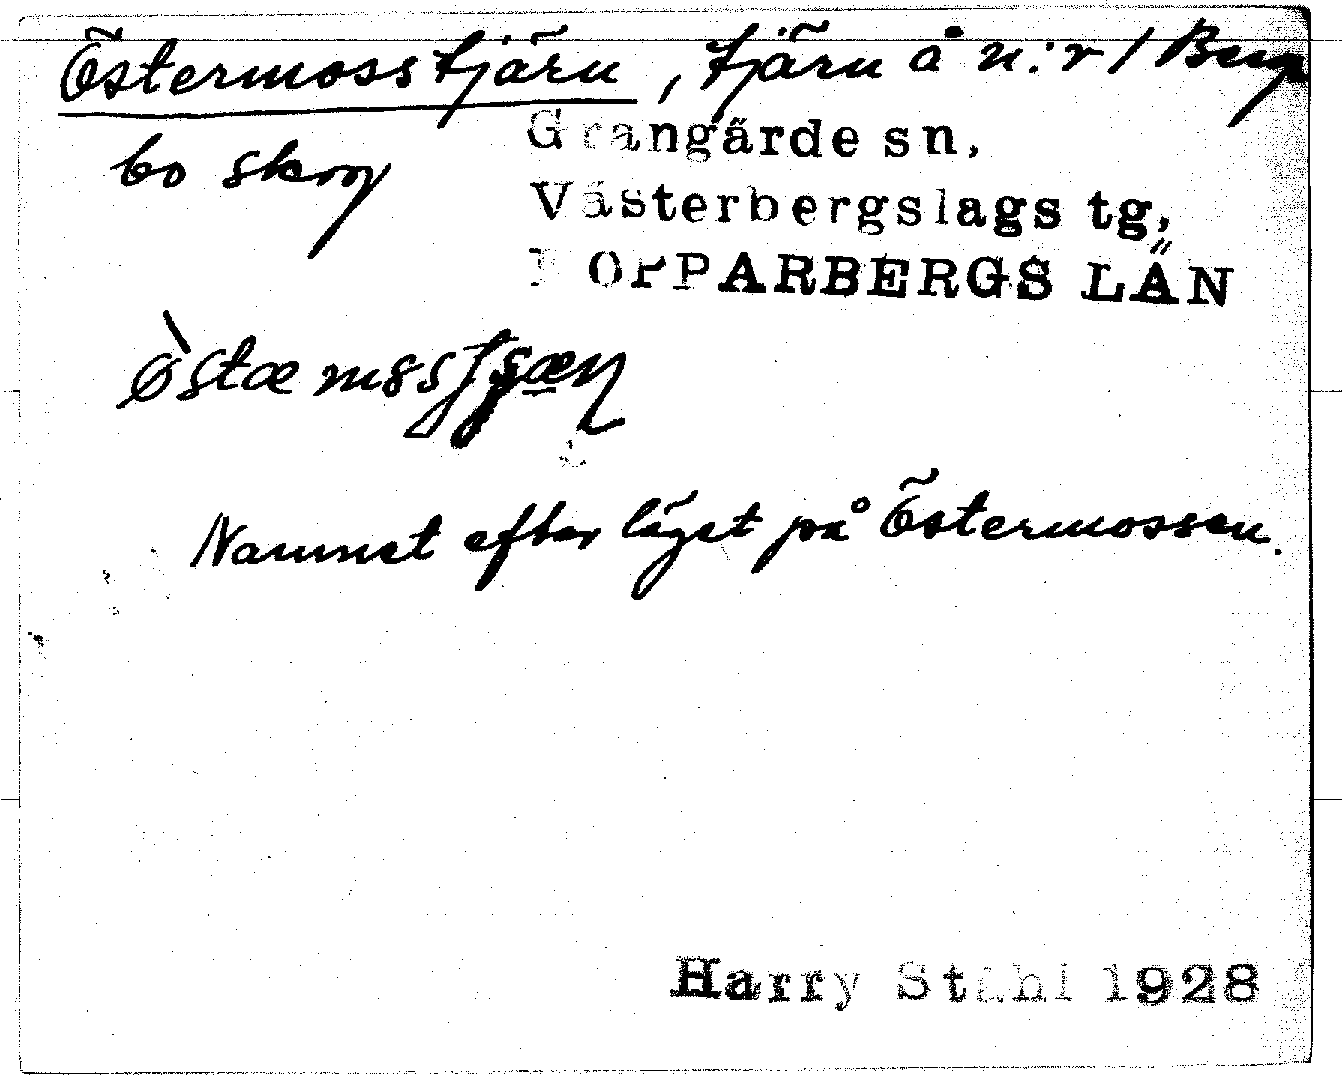 Östermosstjärn, tjärn å n:r 1 Berg
bo skog
Grangärde sn,
Västerbergslags tg,
KOPPARBERGS LÄN
Namnet efter läget på Östermossen.
Harry Ståhl 1928